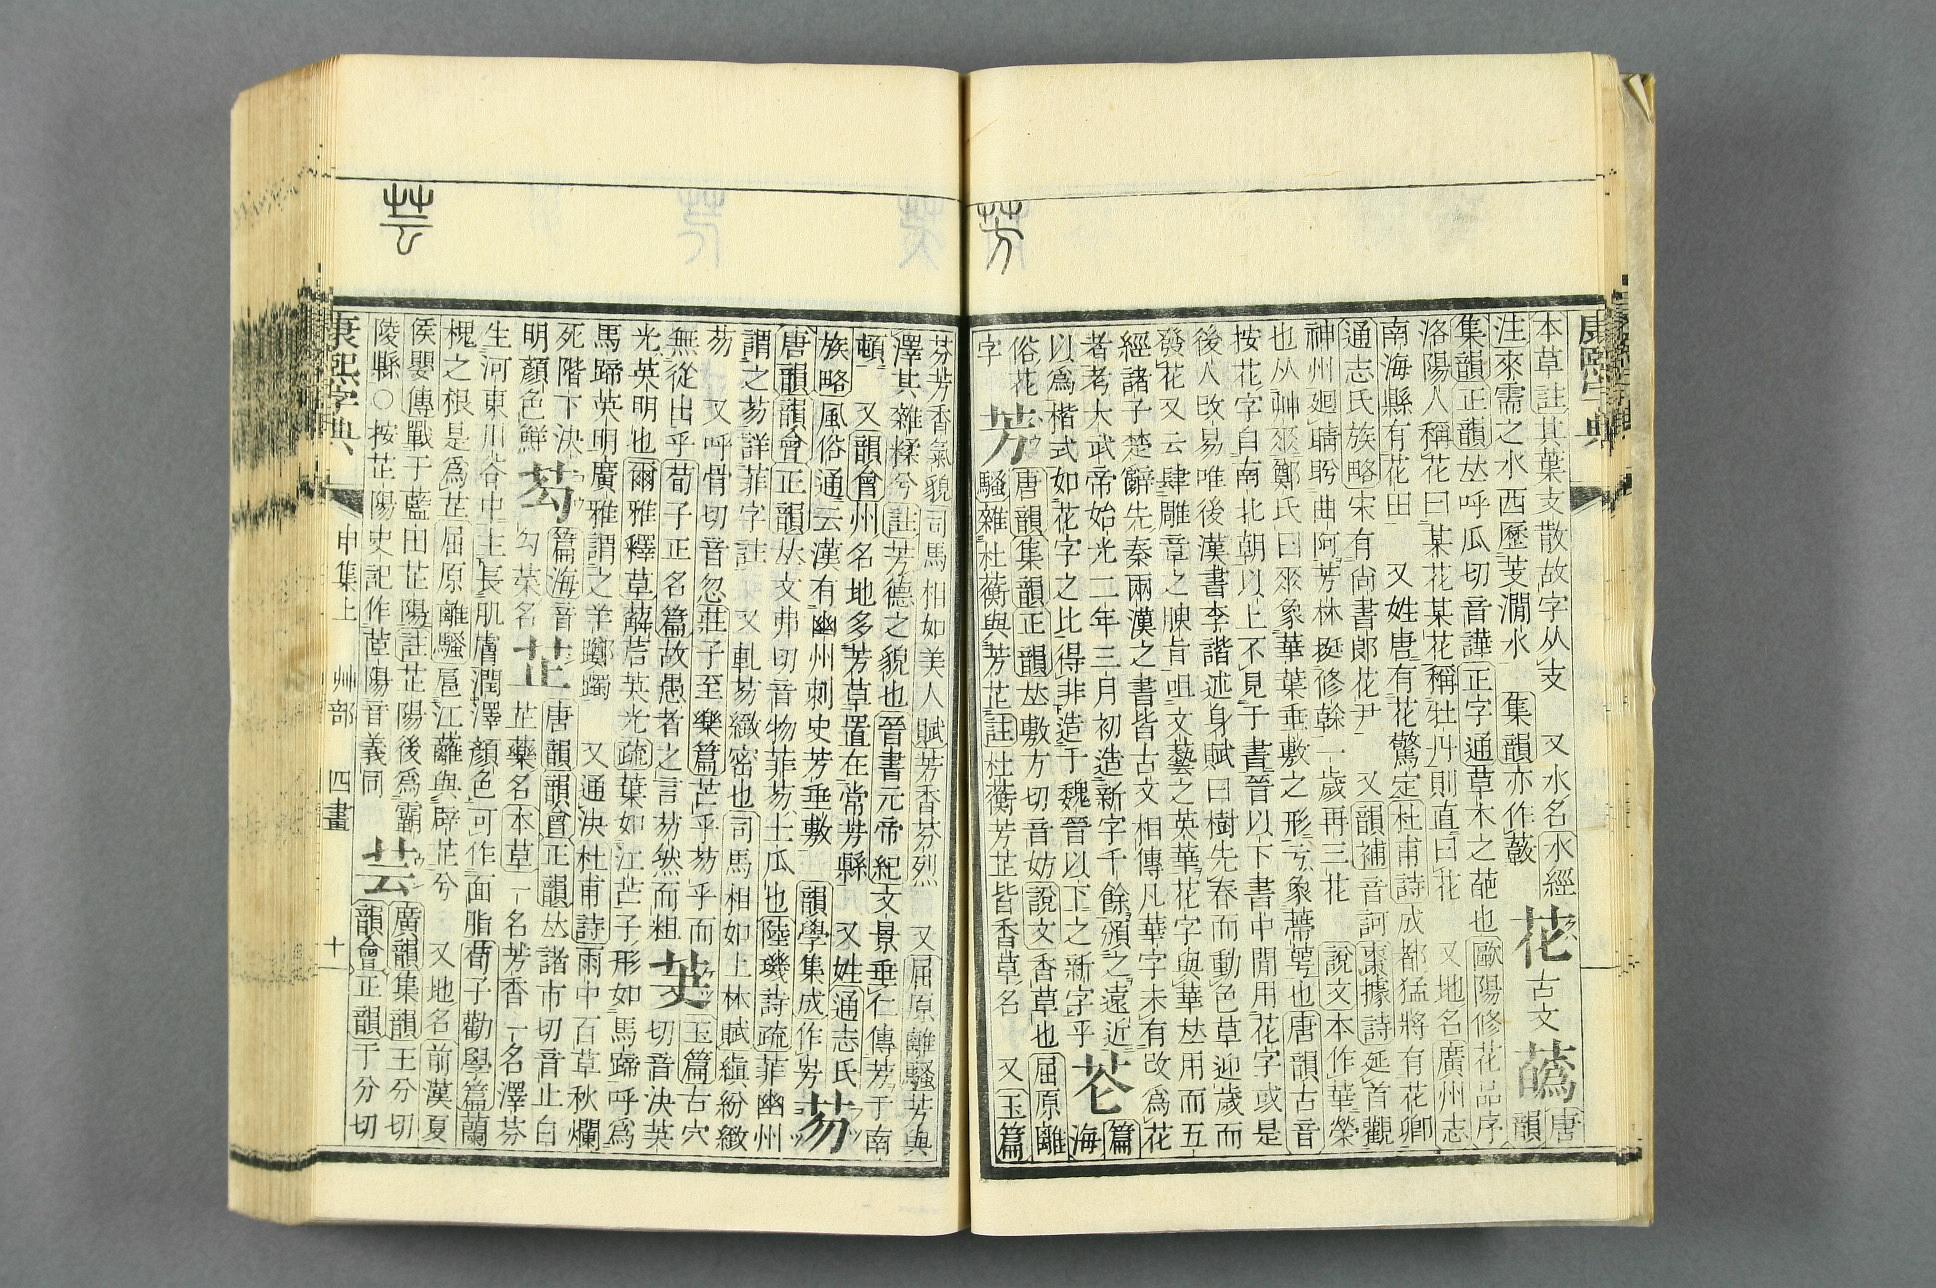 芳
康熙字典
本草註其葉支散故字从支　又水名水經
注來需之水西歷芰澗水　集韻亦作䕍
花古文蘤
唐韻
集韻正韻𠀤呼瓜切音譁正字通草木之葩也歐陽修花品序
洛陽人稱花曰某花某花稱牡丹則直曰花　又地名廣州志
南海縣有花田　又姓唐有花驚定杜甫詩成都猛將有花卿
通志氏族略宋有尙書郞花尹　又韻補音訶棗據詩延首觀
神州廻睛盻曲阿芳林挺修榦一歲再三花　說文本作華榮
也从艸𠌶鄭氏曰𠌶象華葉垂敷之形亏象蔕萼也唐韻古音
按花字自南北朝以上不見于書晉以下書中閒用花字或是
後人改易唯後漢書李諧述身賦曰樹先春而動色草迎歲而
發花又云肆雕章之腴旨咀文藝之英華花字與華𠀤用而五
經諸子楚辭先秦兩漢之書皆古文相傳凡華字未有改爲花
者考太武帝始光二年三月初造新字千餘頒之遠近
以爲楷式如花字之比得非造于魏晉以下之新字乎
芲
篇
海
俗花
字
芳
唐韻集韻正韻𠀤敷方切音妨說文香草也屈原離
騷雜杜蘅與芳芷註杜蘅芳芷皆香草名　又玉篇
芸
芬芳香氣貌司馬相如美人賦芳香芬烈　又屈原離騷芳與
澤其雜糅兮註芳德之貌也晉書元帝紀文景垂仁傳芳于南
頓　又韻會州名地多芳草置在常芳縣　又姓通志氏
族略風俗通云漢有幽州刺史芳垂敷　韻學集成作芳
芴
唐韻韻會正韻𠀤文弗切音物菲芴土瓜也陸璣詩疏菲幽州
謂之芴詳菲字註　又軋芴緻密也司馬相如上林賦縝紛軋
芴　又呼骨切音忽莊子至樂篇芒乎芴乎而
無從出乎荀子正名篇故愚者之言芴然而粗
芵
玉篇古穴
切音決芵
光英明也爾雅釋草薢茩英光疏葉如江芒子形如馬蹄呼爲
馬蹄英明廣雅謂之羊躑躅　又通決杜甫詩雨中百草秋爛
死階下決
明顏色鮮
芶
篇海音
勾菜名
芷
唐韻韻會正韻𠀤諸市切音止白
芷藥名本草一名芳香一名澤芬
生河東川谷中主長肌膚潤澤顏色可作面脂荀子勸學篇蘭
槐之根是爲芷屈原離騷扈江蘺與辟芷兮　又地名前漢夏
侯嬰傳戰于藍田芷陽註芷陽後爲霸
陵縣○按芷陽史記作茝陽音義同
芸
廣韻集韻王分切
韻會正韻于分切
康熙字典
申集上　艸部　四畫　十